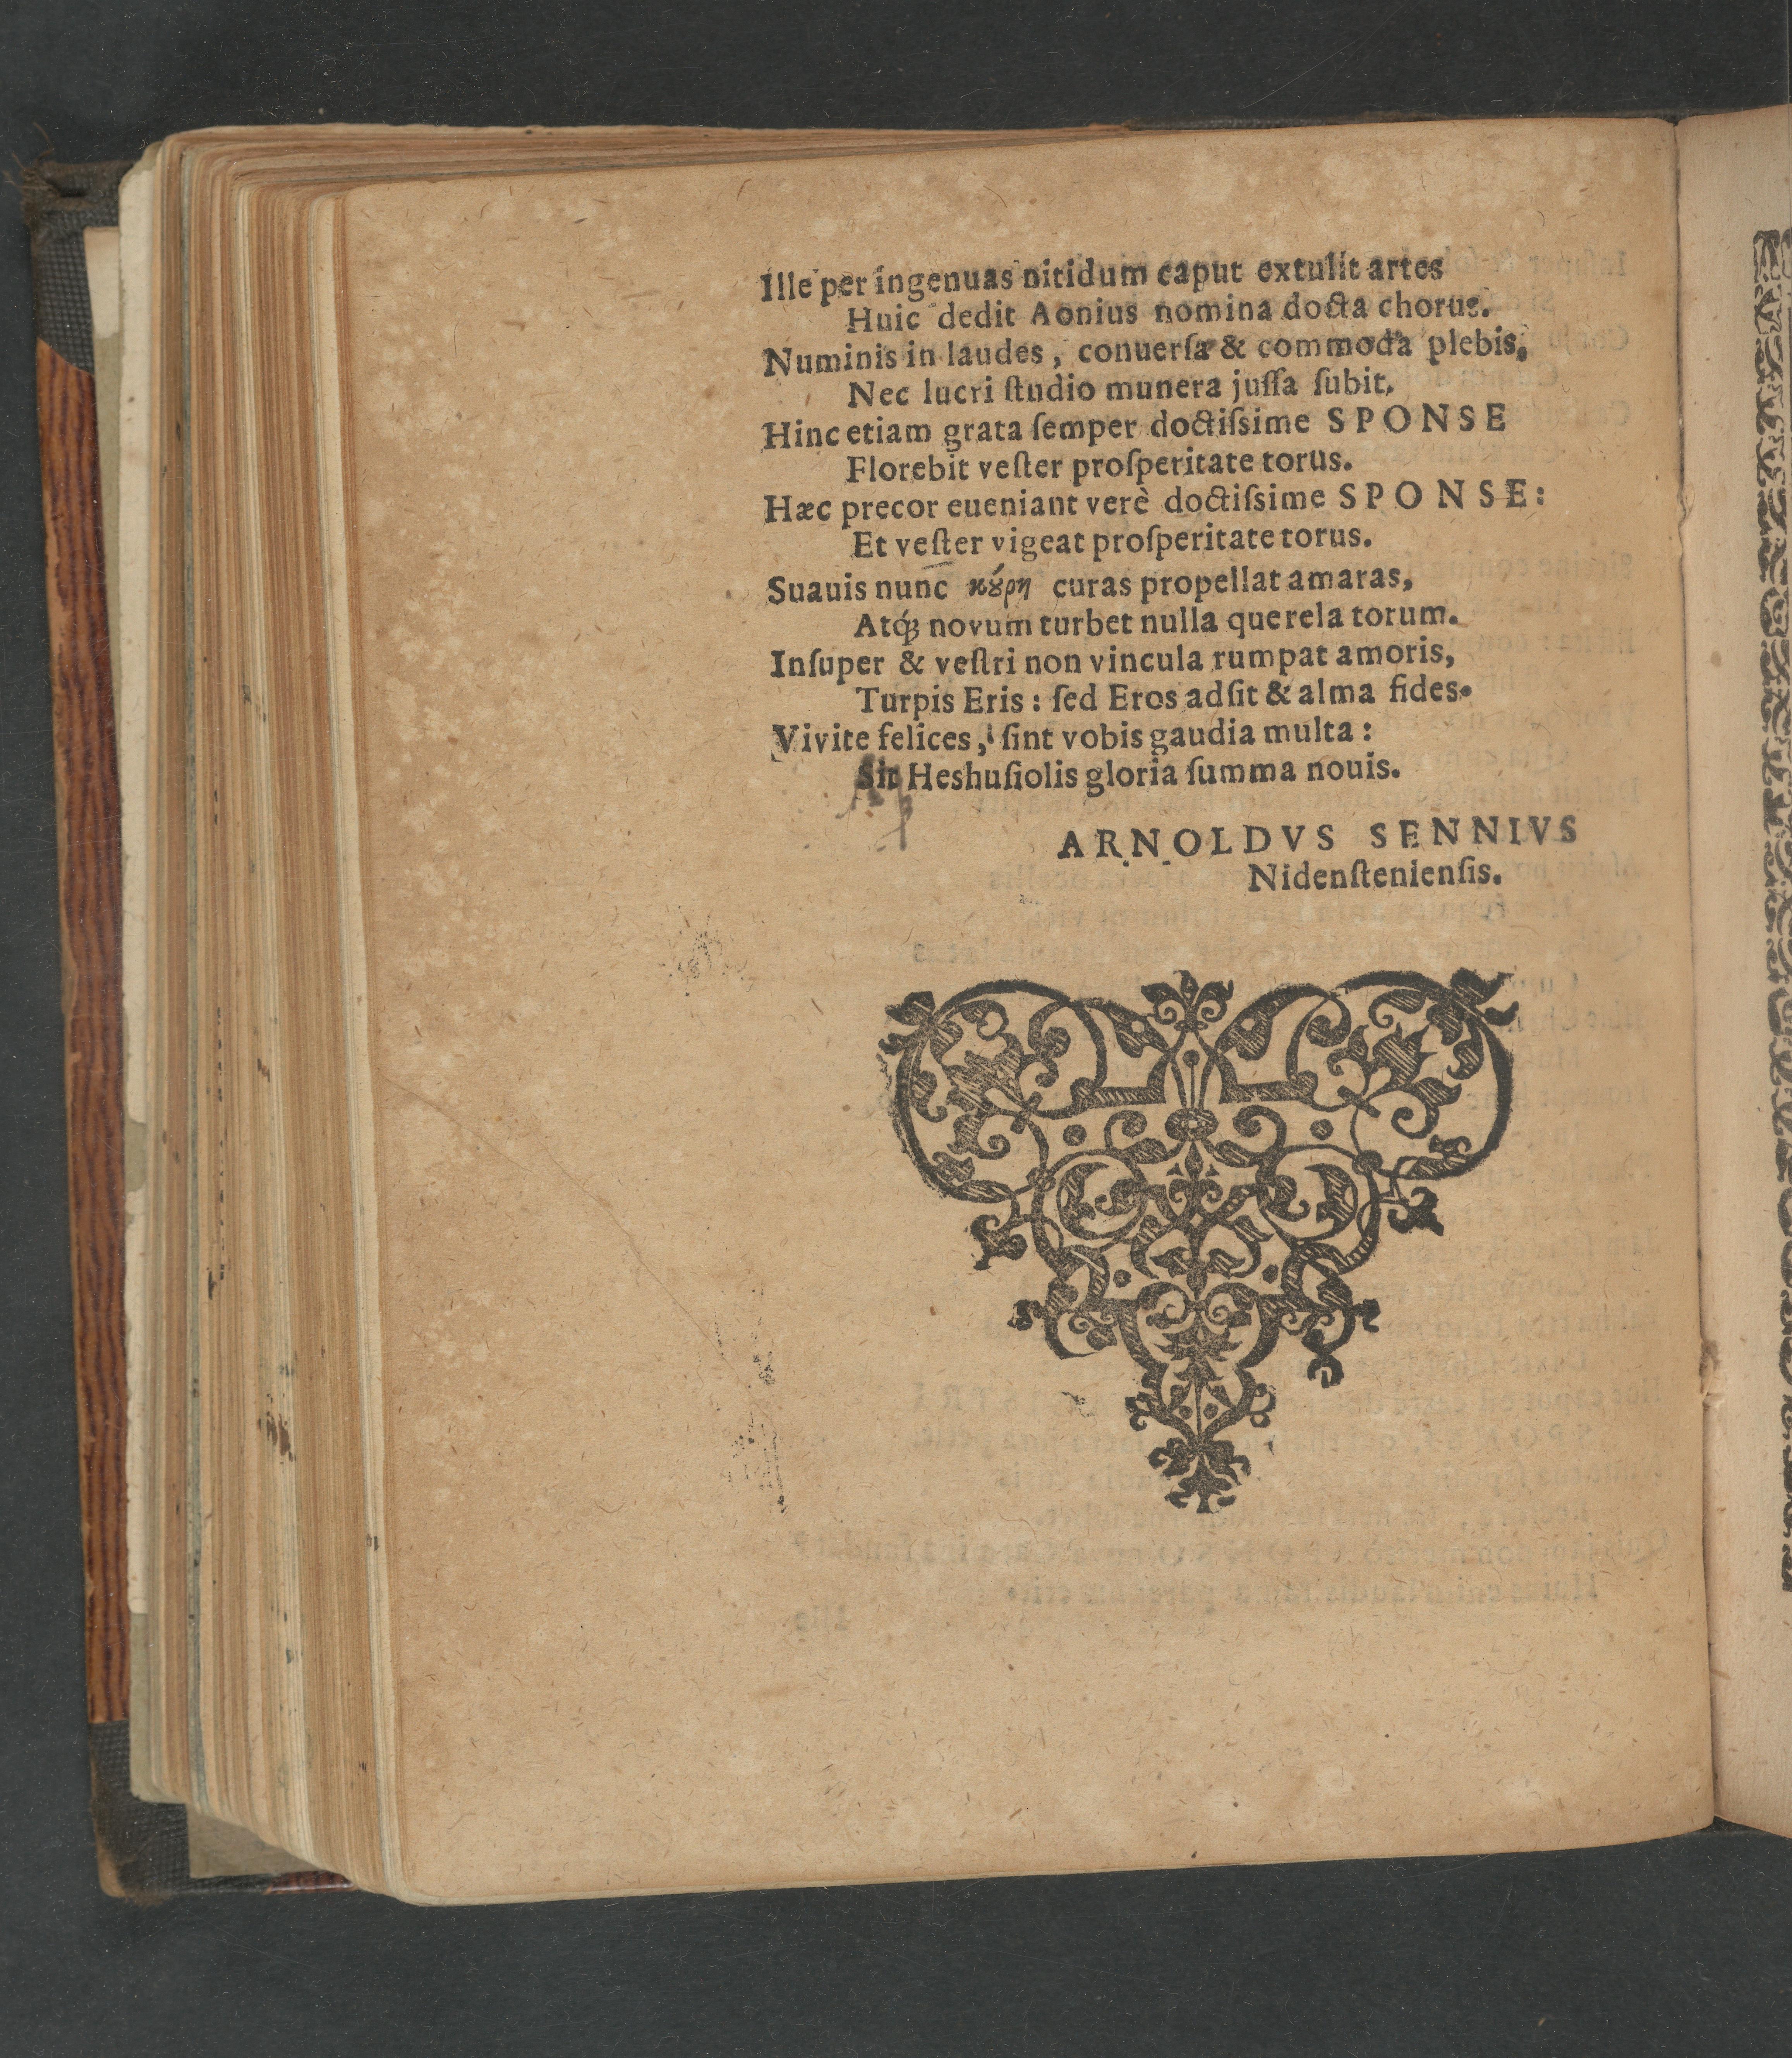 Ille per ingenuas nitidum caput extulit artes
Huic dedit Aonius nomina docta chorus.
Numinis in laudes, conuersæ & commoda plebis,
Nec lucri ſtudio munera juſſa ſubit,
Hinc etiam grata ſemper doctiſsime SPONSE
Florebit veſter proſperitate torus.
Hæc precor eueniant verè doctiſsime SPONSE:
Et veſter vigeat proſperitate torus.
Suauis nunc κȣ́ρη curas propellat amaras,
Atq́ꝫ novum turbet nulla querela torum.
Inſuper & veſtri non vincula rumpat amoris,
Turpis Eris: ſed Eros adſit & alma fides.
Vivite felices, ſint vobis gaudia multa:
Sit Heshuſiolis gloria ſumma nouis.
ARNOLDVS SENNIVS
Nidenſtenienſis.